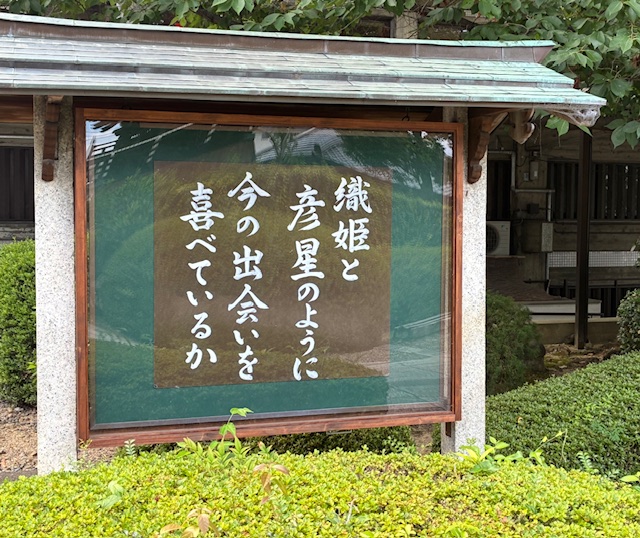 織姫と
彦星のように
今の出会いを
喜べているか